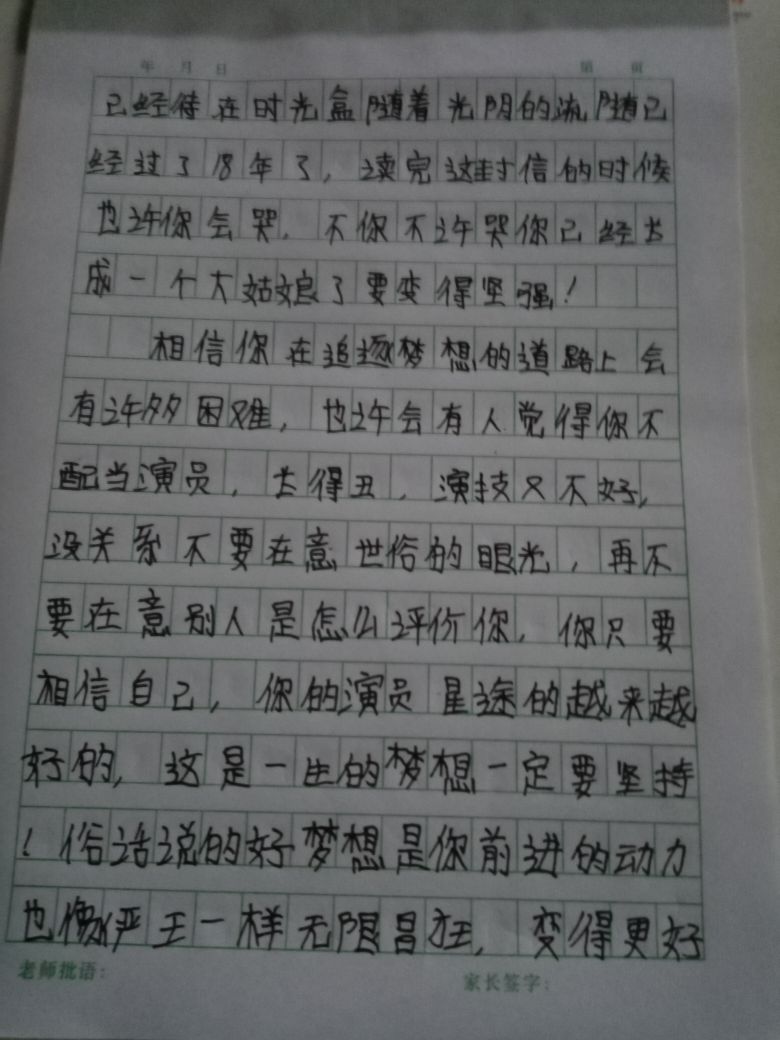 年 月 日 第 页
已经待在时光盒随着光阴的流随已
经过了18年了,读完这封信的时候
也许你会哭,不你不许哭你已经长
成一个大姑娘了要变得坚强!
相信你在追逐梦想的道路上会
有许多困难,也许会有人觉得你不
配当演员,长得丑,演技又不好,
没关系不要在意世俗的眼光,再不
要在意别人是怎么评价你,你只要
相信自己,你的演员星途的越来越
好的,这是一生的梦想一定要坚持
!俗话说的好梦想是你前进的动力
也像严王一样无限冒狂,变得更好
老师批语: 家长签字: